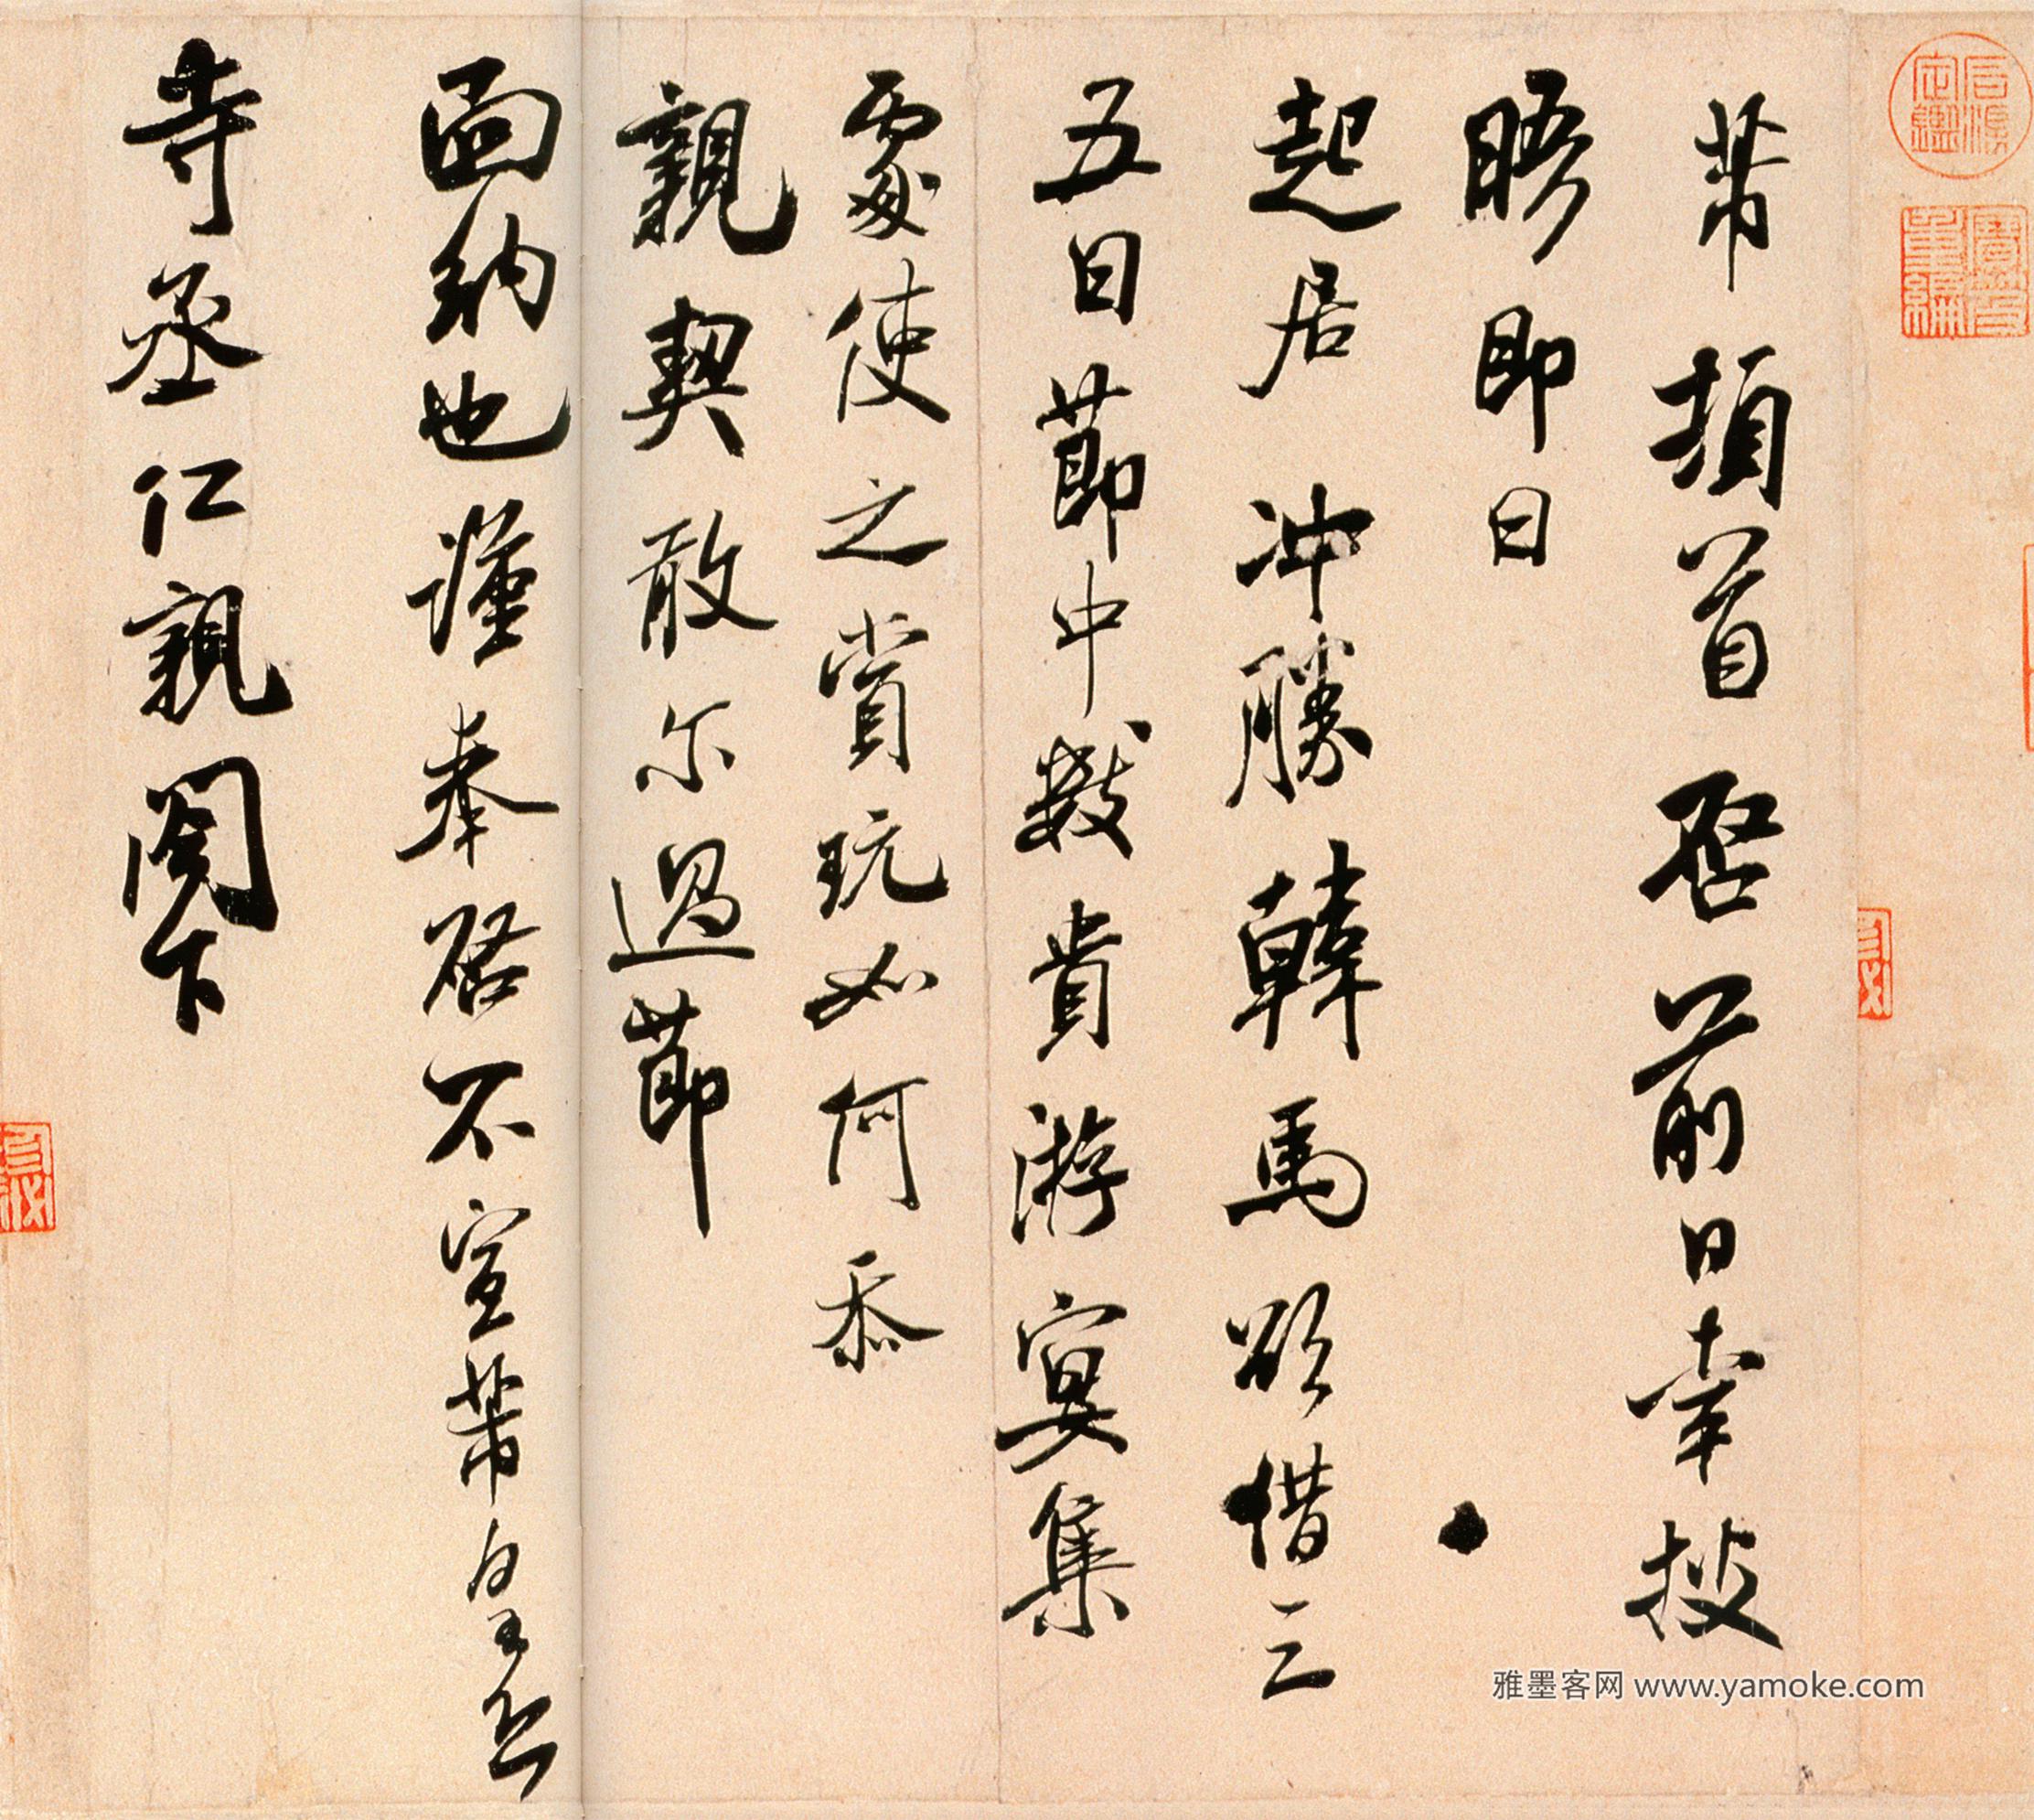 芾頓首啓前日幸披
晤即日
起居冲勝韓馬欲借三
五日節中數貴游宴集
處使之賞玩如何忝
親契敢尔過節
面納也謹奉啓不宣芾皇恐
寺丞仁親閣下
雅墨客网 www.yamoke.com